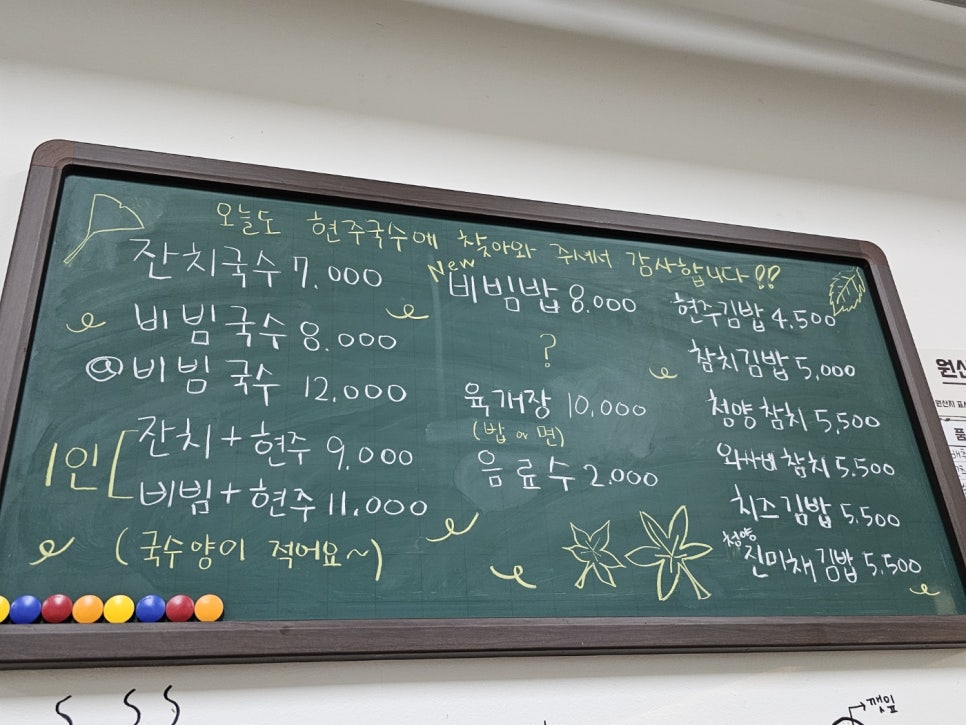 오늘도 현주국수에 찾아와 주셔서 감사합니다!!
잔치국수 7.000
비빔국수 8.000
비빔국수 12.000
1인
잔치+현주 9.000
비빔+현주 11.000
(국수양이 적어요~)
New
비빔밥 8.000
?
육개장 10,000
(밥 or 면)
음료수 2.000
현주김밥 4,500
참치김밥 5,000
청양참치 5,500
와사비참치 5,500
치즈김밥 5,500
청양
진미채김밥 5,500
원산
원산지 표시
품
깻잎